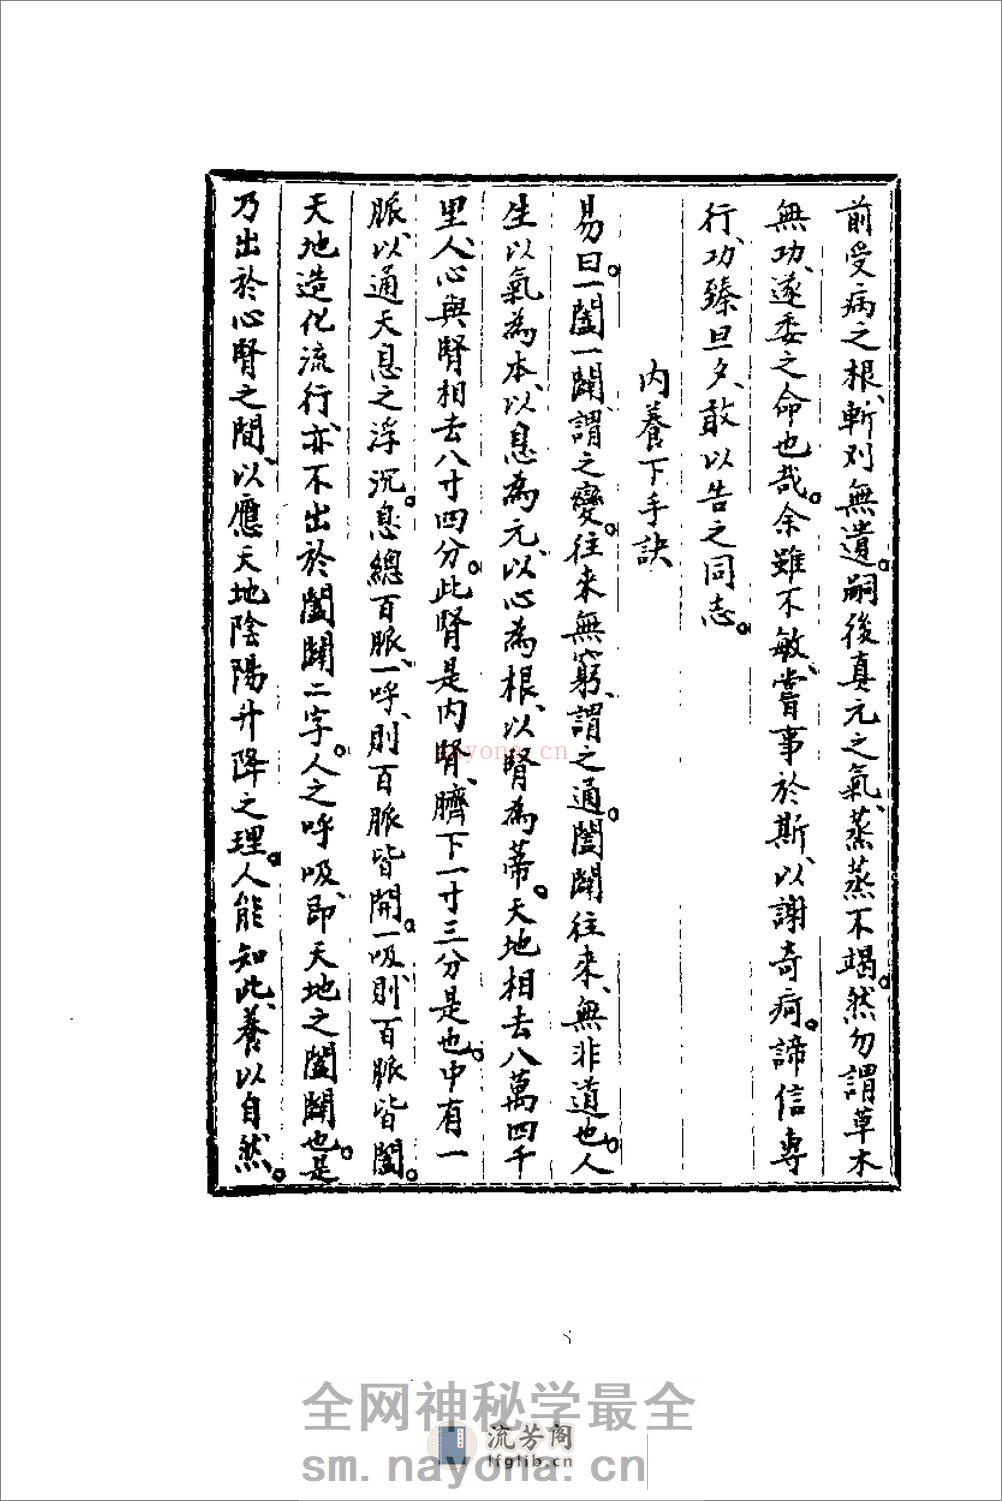 前受病之根、斬刈無遺。嗣後真元之氣、蒸蒸不竭。然勿謂草木
無功、遂委之命也哉。余雖不敏、嘗事於斯、以謝奇疴。諦信專
行、功臻旦夕、敢以告之同志。
內養下手訣
易曰。一闔一闢、謂之變。往來無窮、謂之通。闔闢往來、無非道也。人
生以氣為本、以息為元、以心為根、以腎為蒂。天地相去八萬四千
里、人心與腎相去八寸四分。此腎是內腎、臍下一寸三分是也。中有一
脈、以通天息之浮沉。息總百脈、一呼、則百脈皆開。一吸、則百脈皆闔。
天地造化流行、亦不出於闔闢二字。人之呼吸、即天地之闔闢也。是
乃出於心腎之間、以應天地陰陽升降之理。人能知此、養以自然。
nayona.cn
全网神秘学最全
流芳阁
lfglib.cn
sm.nayona.cn